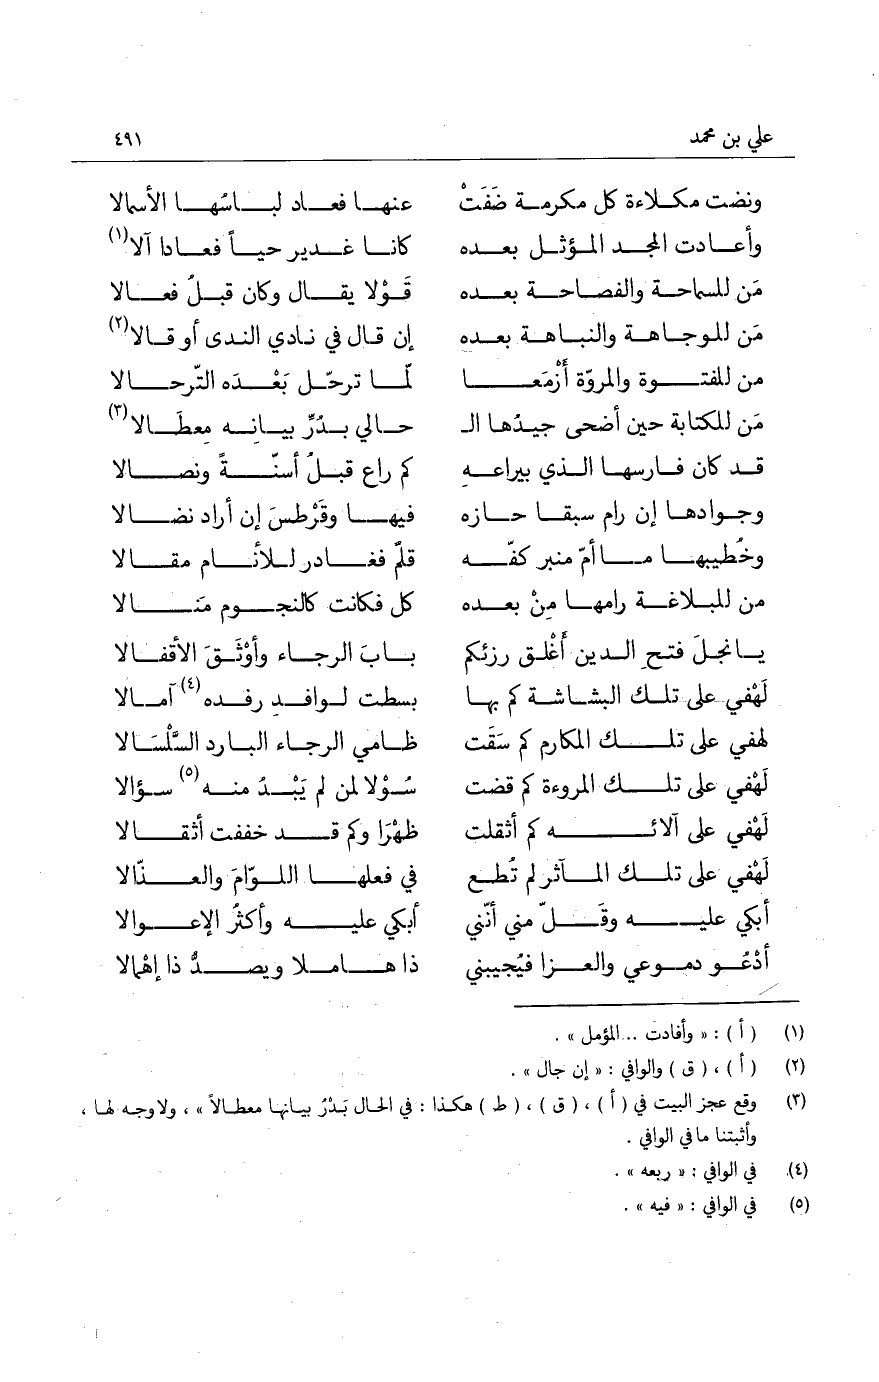 علي بن محمد ٤٩١
ونضت مكلاءة كل مكرمة ضَفَتْ عنها فعاد لباسُها الأسمالا
وأعادت المجد المؤثل بعده كانا غدير حياً فعادا آلا(١)
مَن للسماحة والفصاحة بعده قَوْلا يقال وكان قبلُ فعالا
مَن للوجاهة والنباهة بعده إن قال في نادي الندى أو قالا(٢)
من للفتوة والمروّة أَزْمَعَا لمّا ترحّل بَعْدَه التّرحالا
مَن للكتابة حين أضحى جيدُها الـ حالي بدُرِّ بيانه معطَالا(٣)
قد كان فارسها الذي بيراعه كم راع قبلُ أسنّةً ونصالا
وجوادها إن رام سبقا حازه فيها وقَرْطسَ إن أراد نضالا
وخُطيبها ما أمّ منبر كفّه قلّم فغادر للأنام مقالا
من للبلاغة رامها مِنْ بعده كل فكانت كالنجوم مَنالا
يا نجلَ فتح الدين أَغْلق رزئكم بابَ الرجاء وأوْثَقَ الأقفالا
لَهْفي على تلك البشاشة كم بها بسطت لوافد رفده(٤) آمالا
لهفي على تلك المكارم كم سَقَت ظامي الرجاء البارد السَّلْسَالا
لَهْفي على تلك المروءة كم قضت سُؤلا لمن لم يَبْدُ منه(٥) سؤالا
لَهْفي على آلائه كم أثقلت ظهْرًا وكم قد خففت أثقالا
لَهْفي على تلك المآثر لم تُطع في فعلها اللوّامَ والعذّالا
أبكي عليه وقلّ مني أنّني أبكي عليه وأكثرُ الإعوالا
أدْعُو دموعي والعزا فيُجيبني ذا هاملا ويصدُّ ذا إهْمالا
(١) ( أ ) : « وأفادت ... المؤمل » .
(٢) ( أ ) ، ( ق ) والوافي : « إن جال » .
(٣) وقع عجز البيت في ( أ ) ، ( ق ) ، ( ط ) هكذا : في الحال بَدْرُ بيانها معطالاً » ، ولا وجه لها ،
وأثبتنا ما في الوافي .
(٤) في الوافي : « ربعه » .
(٥) في الوافي : « فيه » .